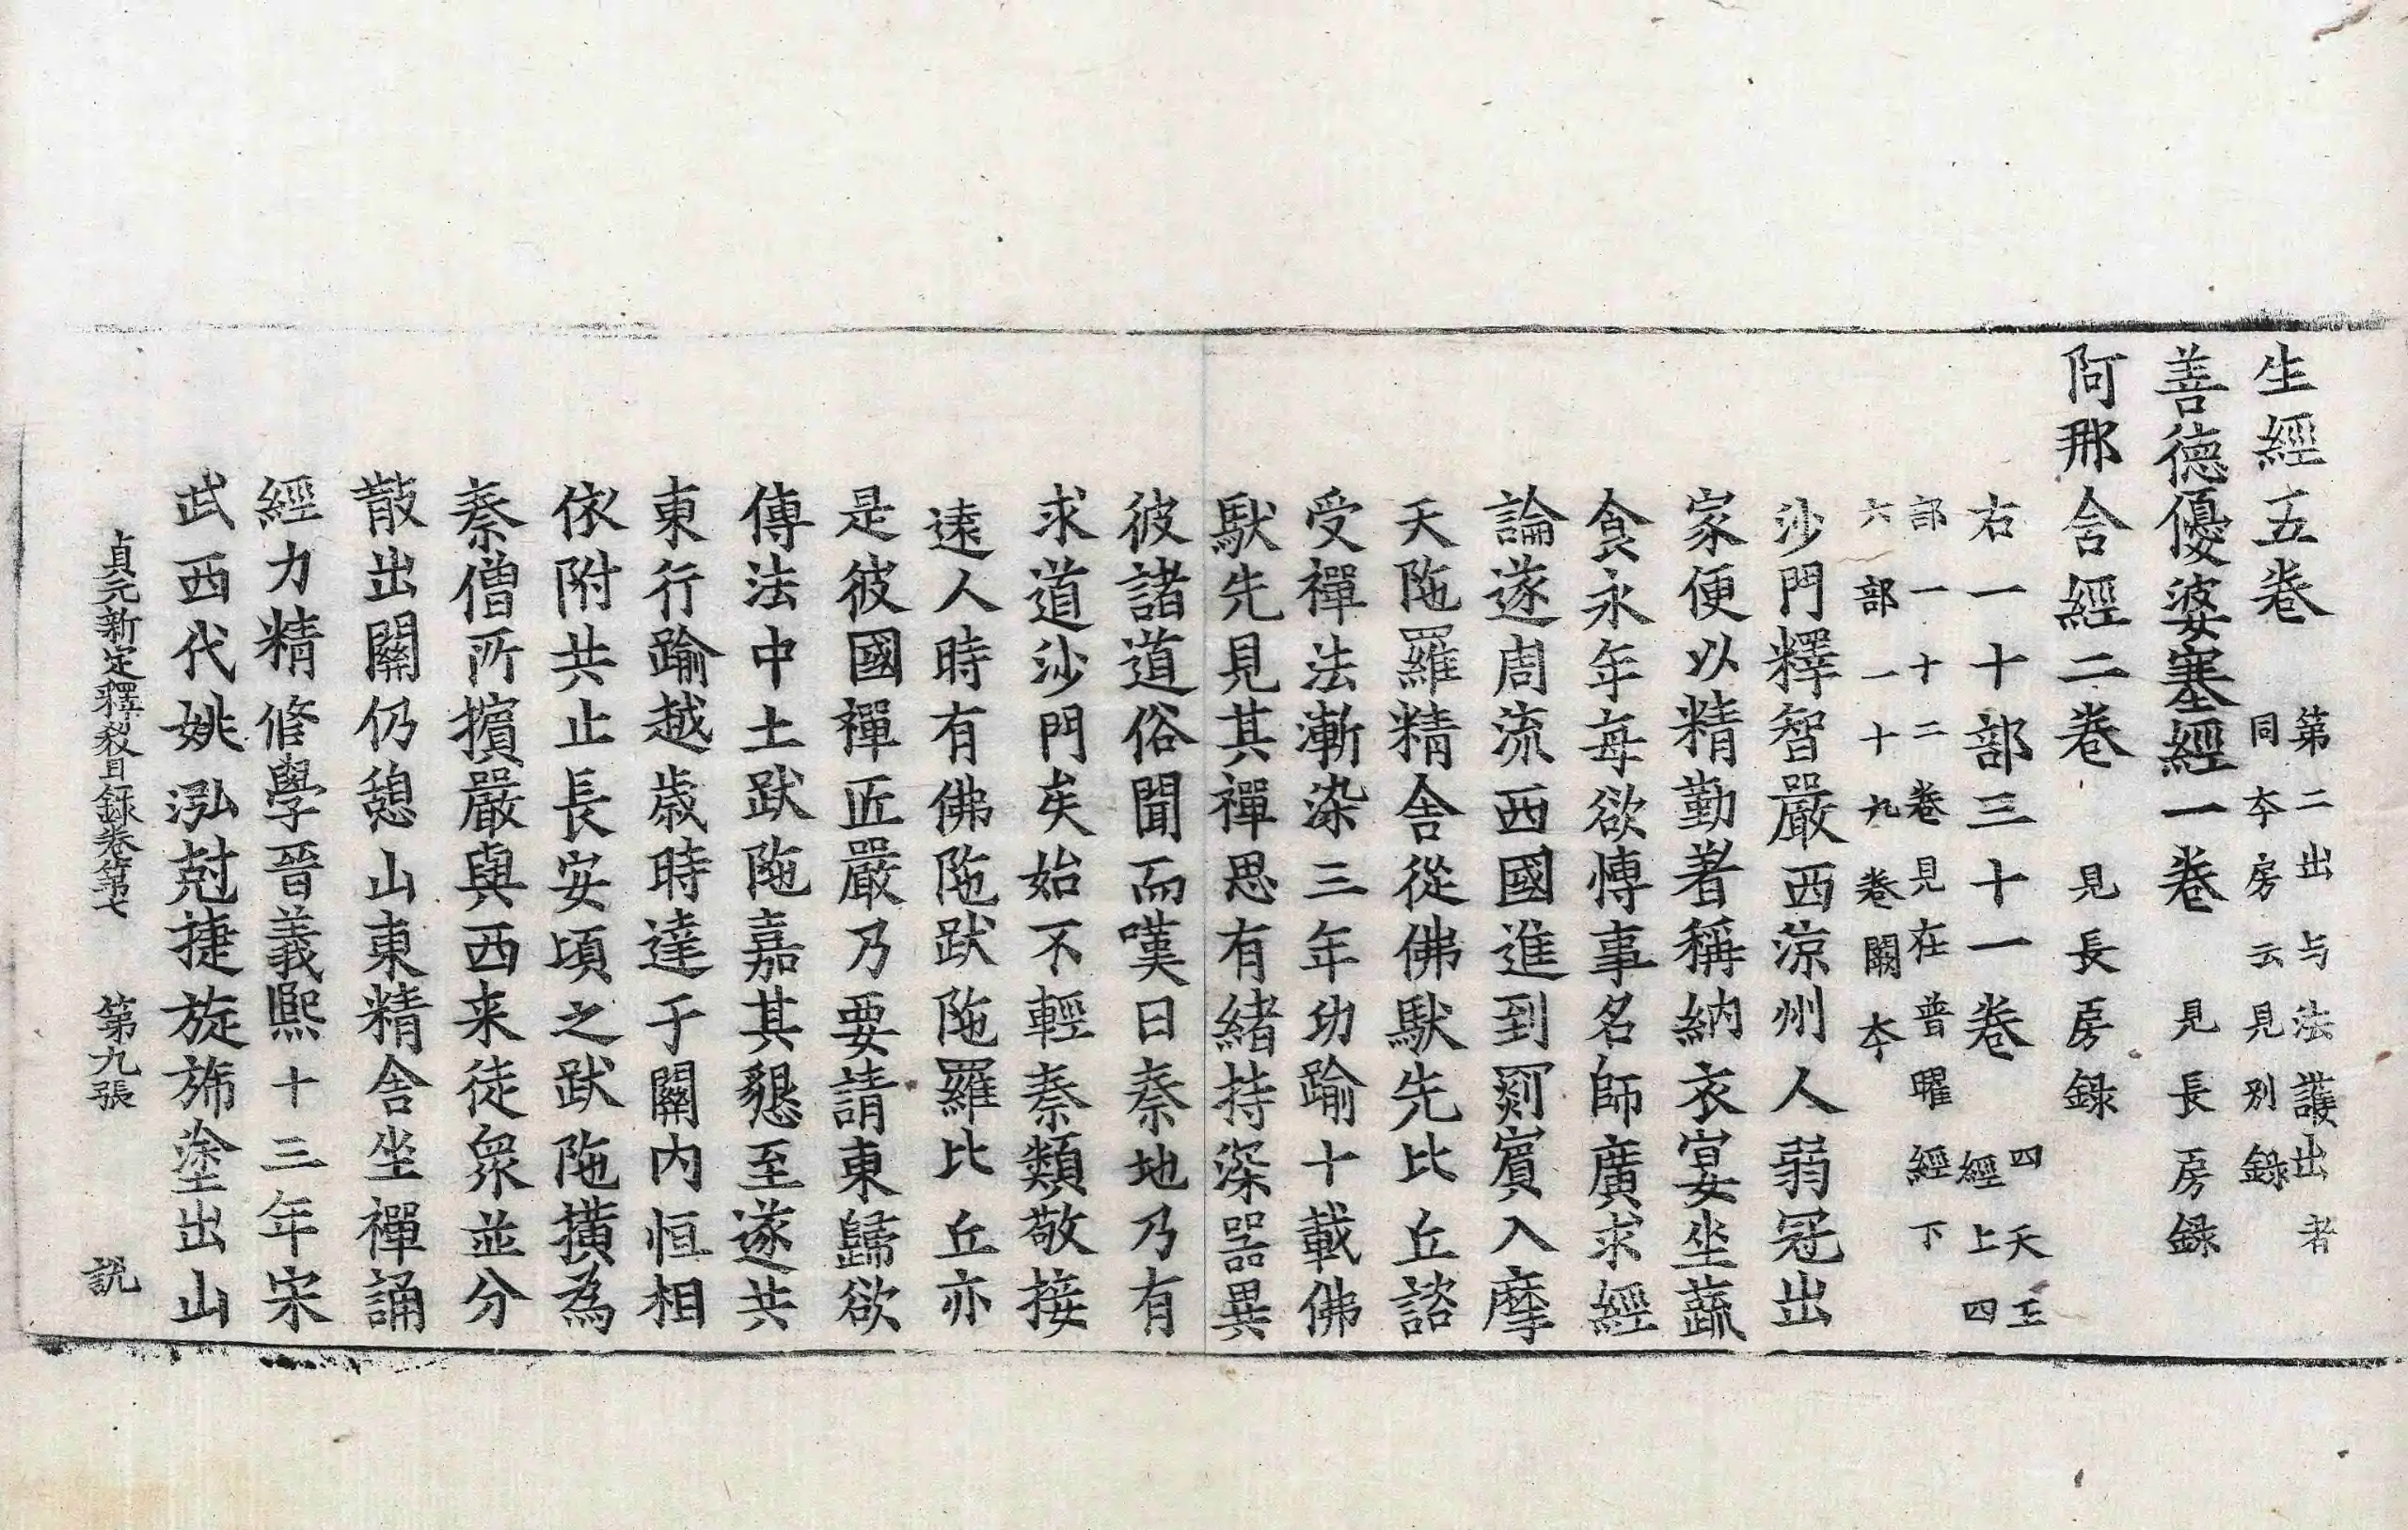 生經五卷 第二出与法護出者同本房云見別錄
善德優婆塞經一卷 見長房録
阿那含經二卷 見長房録
右一十部三十一卷 四天王經上四
部一十二卷見在普曜經下
六部一十九卷闕本
沙門釋智嚴西涼州人弱冠出
家便以精勤著稱納衣宴坐蔬
食永年每欲博事名師廣求經
論遂周流西國進到罽賓入摩
天陁羅精舍從佛馱先比丘諮
受禪法漸染三年功踰十載佛
馱先見其禪思有緒持深器異
彼諸道俗聞而嘆曰秦地乃有
求道沙門矣始不輕秦類敬接
遠人時有佛陁跋陁羅比丘亦
是彼國禪匠嚴乃要請東歸欲
傳法中土跋陁嘉其懇至遂共
東行踰越歲時達于關内恒相
依附共止長安頃之跋陁擯為
秦僧所擯嚴與西来徒衆並分
散出關仍憩山東精舍坐禪誦
經力精修學晉義熙十三年宋
武西伐姚泓剋捷旋斾塗出山
貞元新定釋教目録卷第七 第九張 説